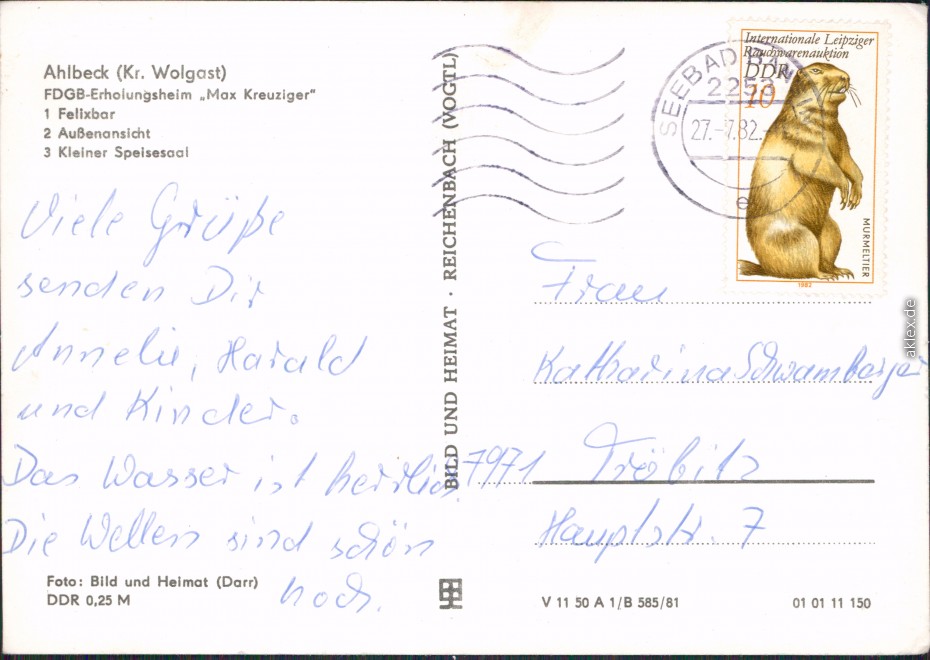 Ahlbeck (Kr. Wolgast)
FDGB-Erholungsheim „Max Kreuziger"
1 Felixbar
2 Außenansicht
3 Kleiner Speisesaal
Viele Grüße
senden Dir
Annelie, Harald
und Kinder.
Das Wasser ist herrlich
Die Wellen sind schön
hoch.
Foto: Bild und Heimat (Darr)
DDR 0,25 M
BILD UND HEIMAT · REICHENBACH (VOGTL)
SEEBAD
2253
27.-7.82.-
e
Internationale Leipziger
Rauchwarenauktion
DDR
10
MURMELTIER
1982
Frau
Katharina Schwamberger
7971 Tröbitz
Hauptstr. 7
V 11 50 A 1/B 585/81
01 01 11 150
aklex.de